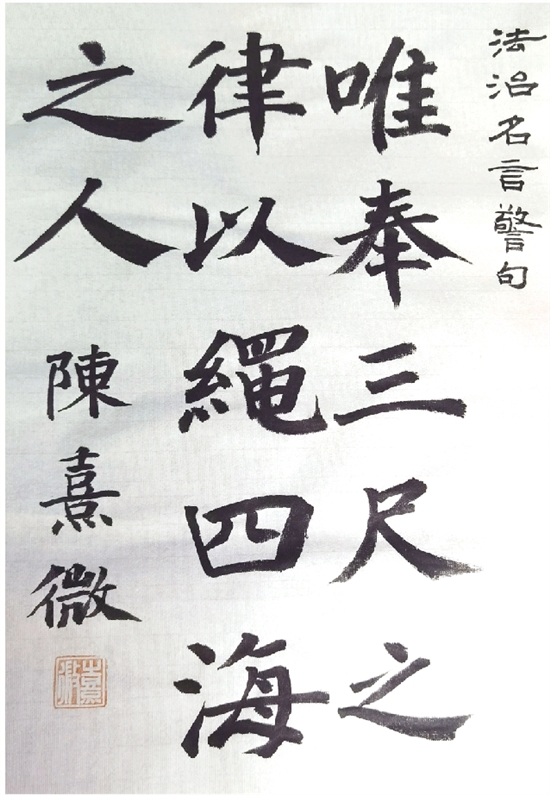 法治名言警句
唯奉三尺之
律以繩四海
之人
陳熹微